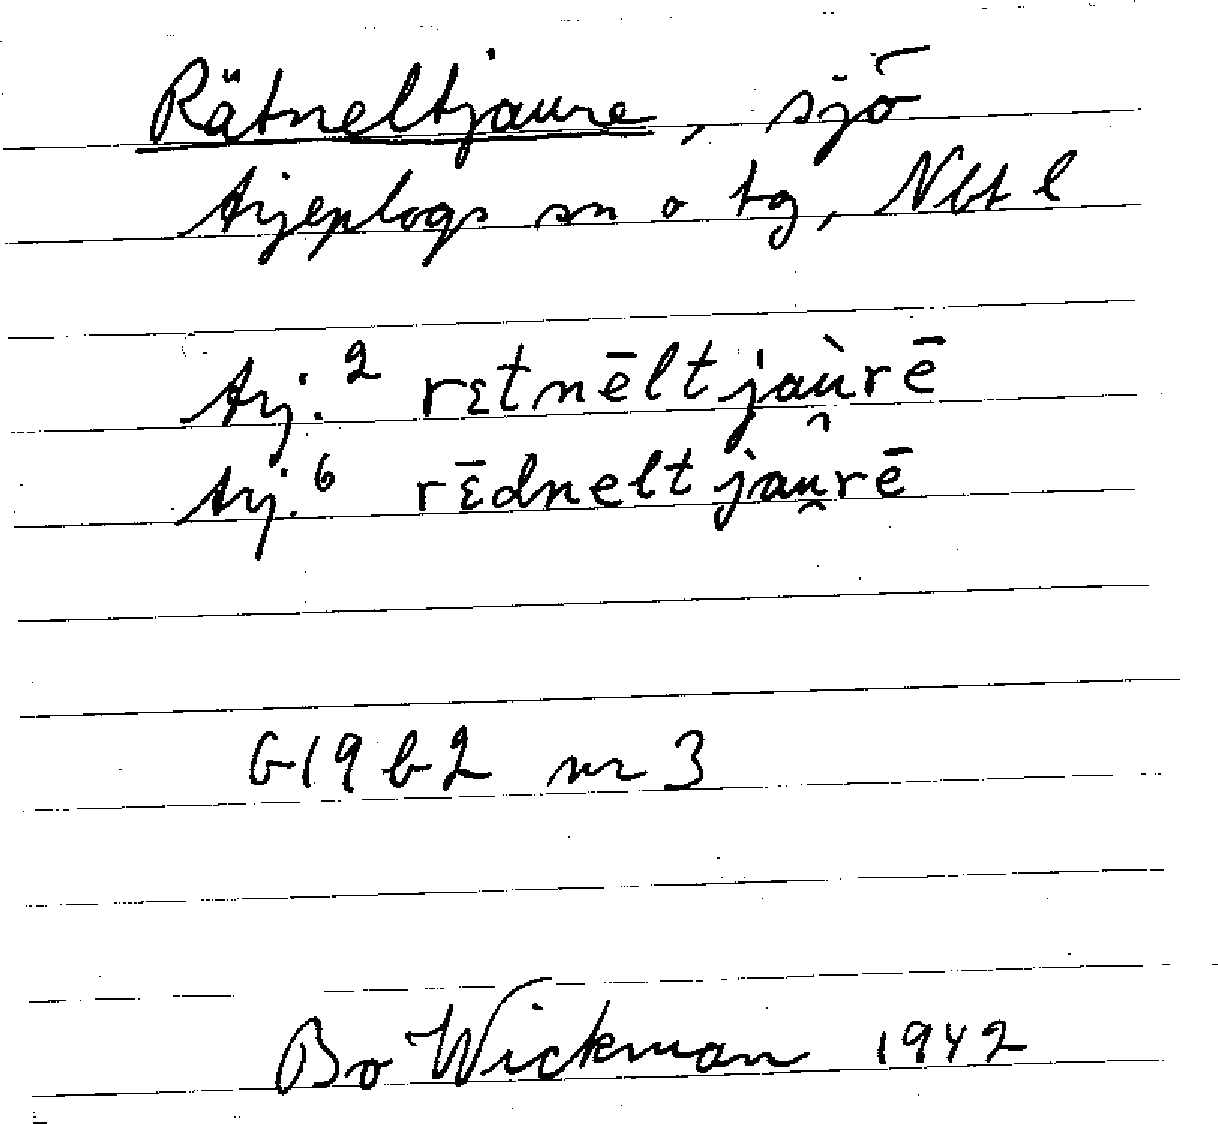 Rätneltjaure, sjö
Arjeplogs sn o tg, Nbt l
Arj.² rɛtnēltjaù̯rē
Arj.⁶ rɛ̄dneltjaû̯rē
G19 b2 nr 3
Bo Wickman 1942